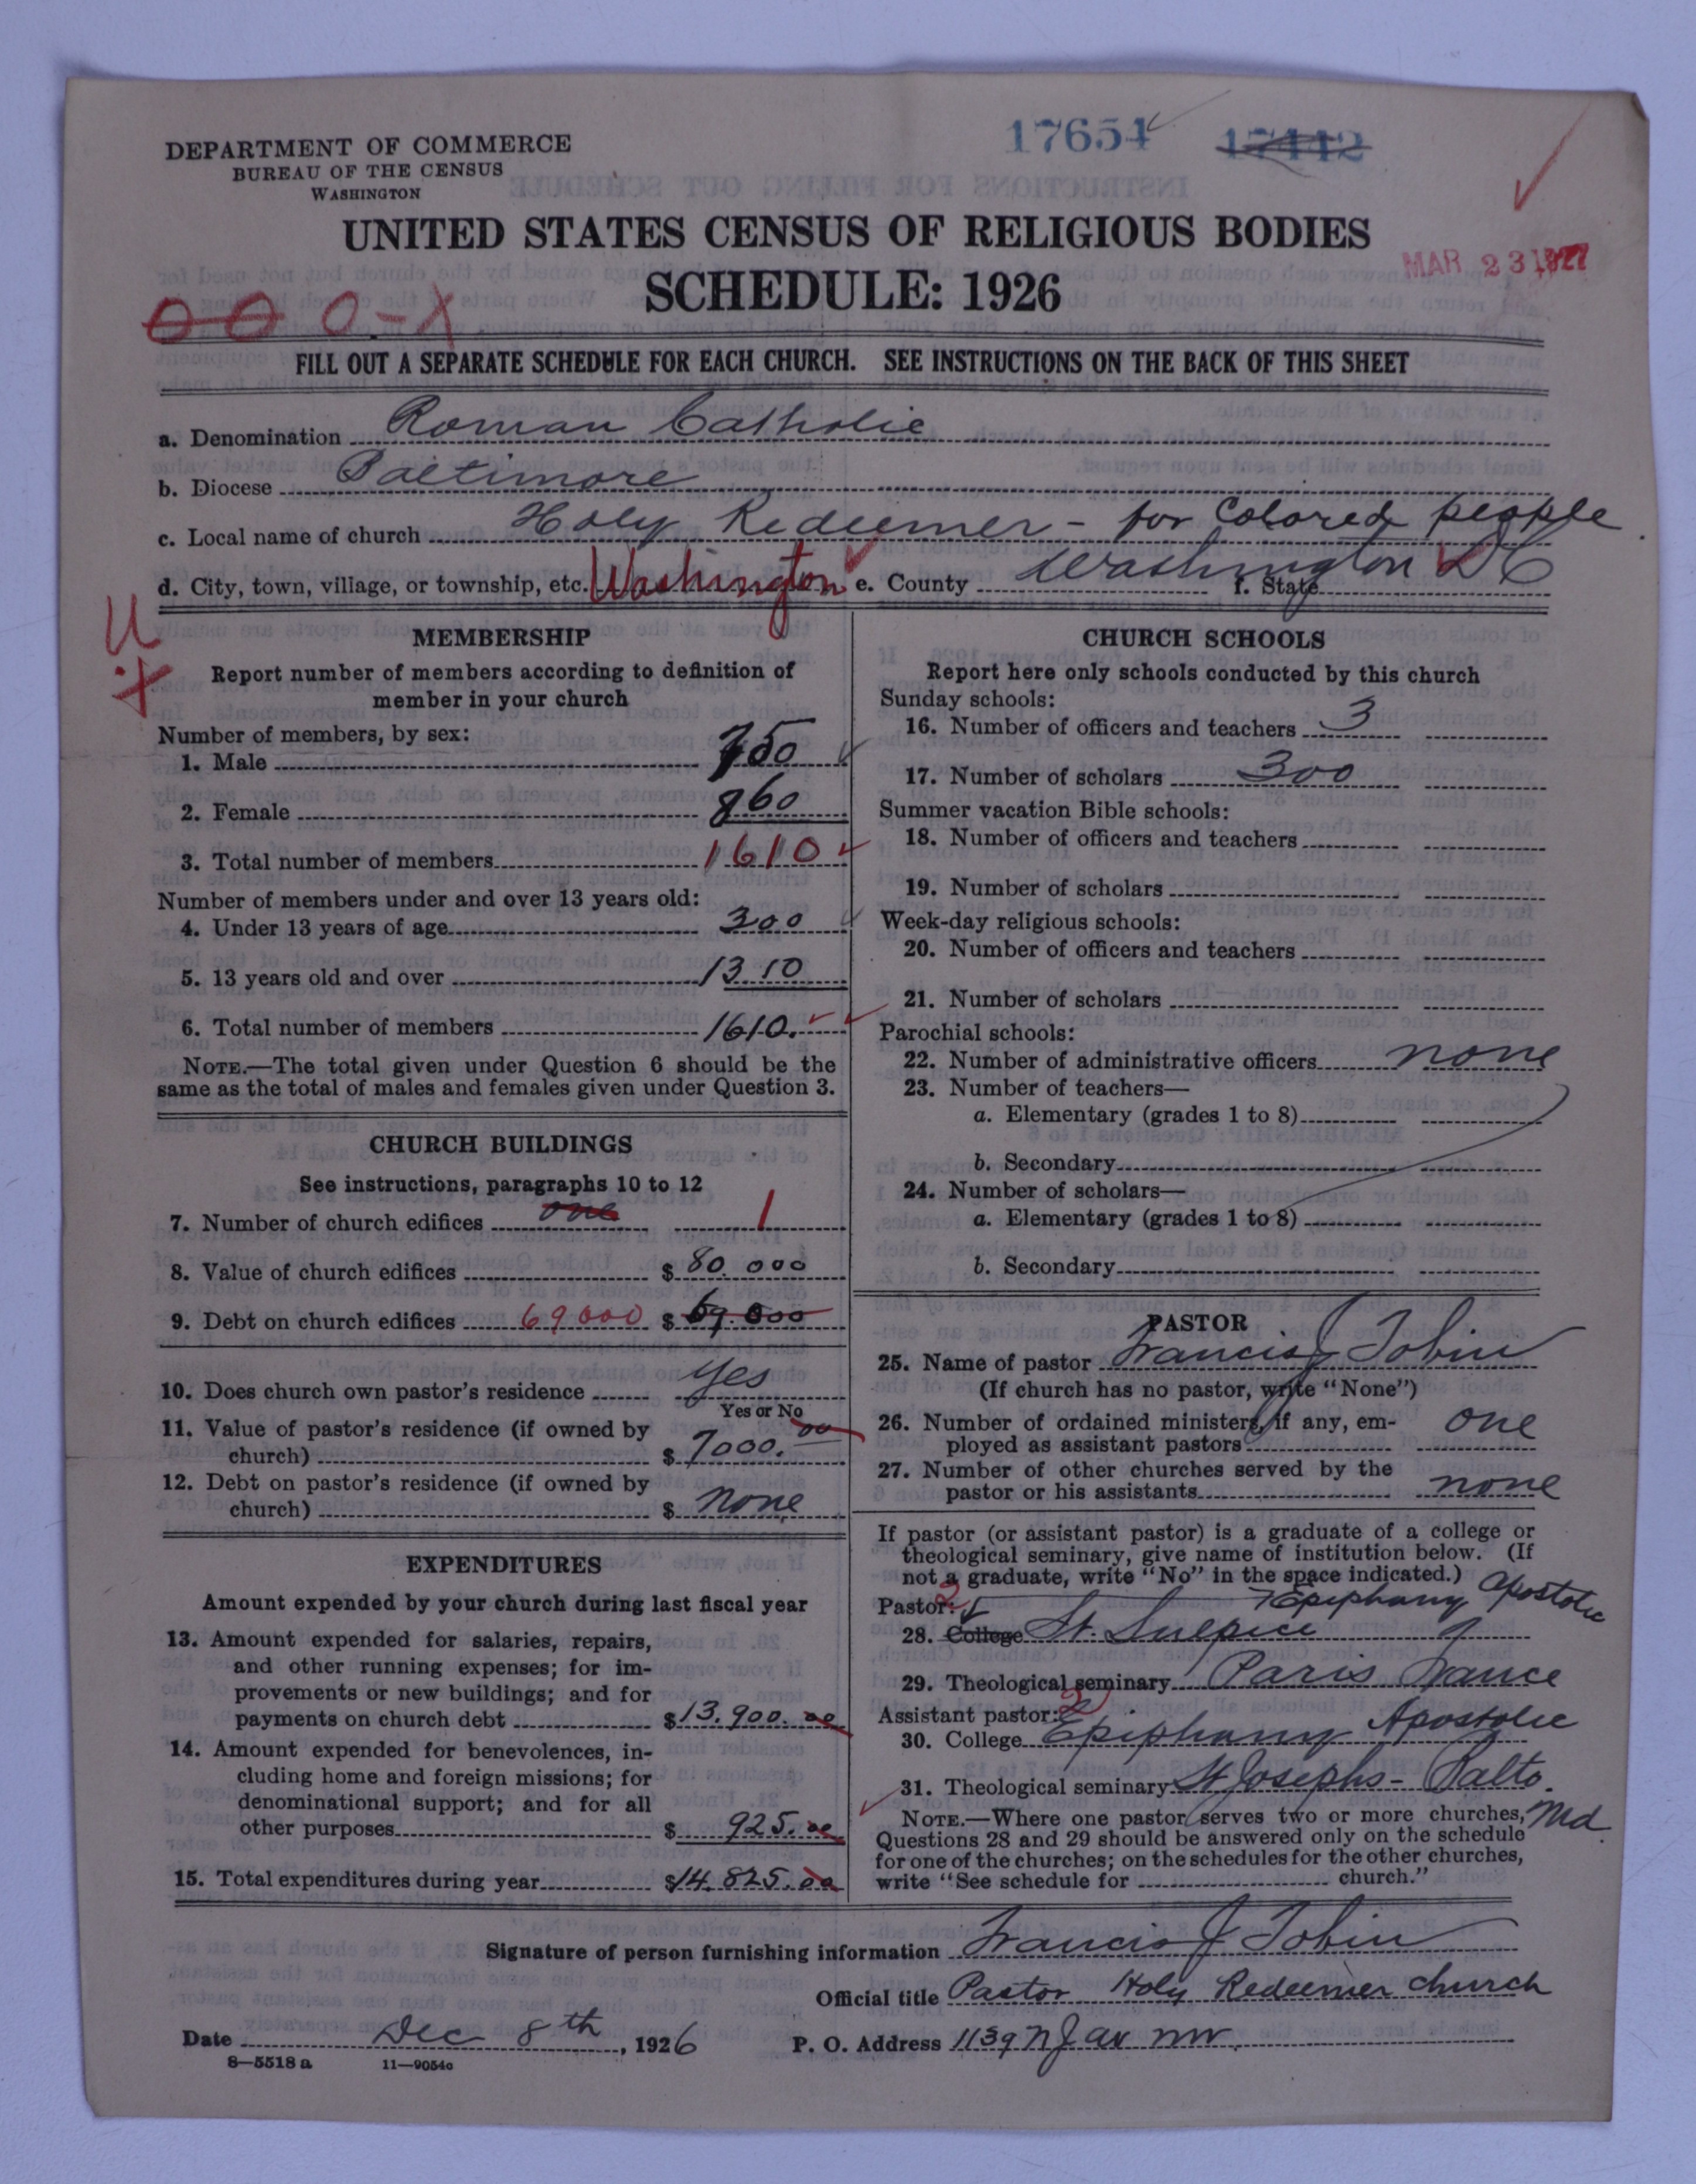 17654 17442
DEPARTMENT OF COMMERCE
BUREAU OF THE CENSUS
WASHINGTON
UNITED STATES CENSUS OF RELIGIOUS BODIES
MAR 23 1927
SCHEDULE: 1926
O O O-X
FILL OUT A SEPARATE SCHEDULE FOR EACH CHURCH. SEE INSTRUCTIONS ON THE BACK OF THIS SHEET
a. Denomination Roman Catholic
b. Diocese Baltimore
c. Local name of church Holy Redeemer - for Colored people
d. City, town, village, or township, etc. Washington e. County Washington f. State DC
U
MEMBERSHIP
Report number of members according to definition of
member in your church
Number of members, by sex:
1. Male 750
2. Female 860
3. Total number of members 1610
Number of members under and over 13 years old:
4. Under 13 years of age 300
5. 13 years old and over 1310
6. Total number of members 1610.
NOTE.—The total given under Question 6 should be the
same as the total of males and females given under Question 3.
CHURCH BUILDINGS
See instructions, paragraphs 10 to 12
7. Number of church edifices one 1
8. Value of church edifices $ 80.000
9. Debt on church edifices 69000 $ 69.000
10. Does church own pastor's residence Yes
Yes or No
11. Value of pastor's residence (if owned by
church) $ 7000.00
12. Debt on pastor's residence (if owned by
church) $ none
EXPENDITURES
Amount expended by your church during last fiscal year
13. Amount expended for salaries, repairs,
and other running expenses; for im-
provements or new buildings; and for
payments on church debt $ 13.900.00
14. Amount expended for benevolences, in-
cluding home and foreign missions; for
denominational support; and for all
other purposes $ 925.00
15. Total expenditures during year $ 14.825.00
CHURCH SCHOOLS
Report here only schools conducted by this church
Sunday schools:
16. Number of officers and teachers 3
17. Number of scholars 300
Summer vacation Bible schools:
18. Number of officers and teachers
19. Number of scholars
Week-day religious schools:
20. Number of officers and teachers
21. Number of scholars
Parochial schools:
22. Number of administrative officers none
23. Number of teachers—
a. Elementary (grades 1 to 8)
b. Secondary
24. Number of scholars—
a. Elementary (grades 1 to 8)
b. Secondary
PASTOR
25. Name of pastor Francis J Tobin
(If church has no pastor, write "None")
26. Number of ordained ministers, if any, em-
ployed as assistant pastors one
27. Number of other churches served by the
pastor or his assistants none
If pastor (or assistant pastor) is a graduate of a college or
theological seminary, give name of institution below. (If
not a graduate, write "No" in the space indicated.)
Pastor: 2 Epiphany Apostolic
28. College St. Sulpice
29. Theological seminary Paris France
Assistant pastor: 2
30. College Epiphany Apostolic
31. Theological seminary St Josephs - Balto.
Md.
NOTE.—Where one pastor serves two or more churches,
Questions 28 and 29 should be answered only on the schedule
for one of the churches; on the schedules for the other churches,
write "See schedule for church."
Signature of person furnishing information Francis J Tobin
Official title Pastor Holy Redeemer church
Date Dec 8th, 1926 P. O. Address 1139 N J av nw
8—5518 a 11—9054c